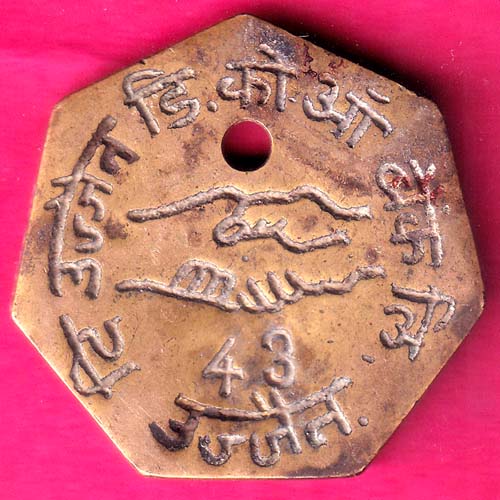 दि उज्जैन डि. को. ऑ बैंक लि
43
उज्जैन.